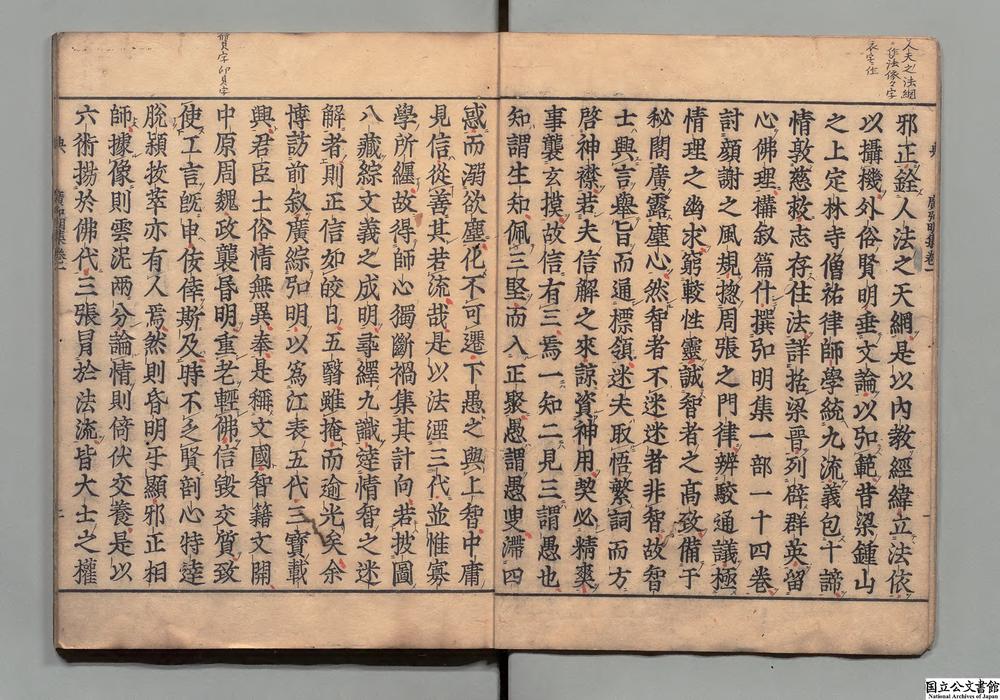 人夫之法網
作法像々字
衣宅仕
邪正銓人法之天網是以內教經緯立法依
以攝機外俗賢明垂文論以弘範昔梁鍾山
之上定林寺僧祐律師學統九流義包十諦
情敦慈救志存住法詳括梁晉列辟群英留
心佛理構叙篇什撰弘明集一部一十四卷
討顔謝之風規揔周張之門律辨駮通議極
情理之幽求窮較性靈誠智者之髙致備于
秘閣廣露塵心然智者不迷迷者非智故智
士興言舉旨而通標領迷夫取悟繁詞而方
啓神襟若夫信解之來諒資神用契必精爽
事襲玄摸故信有三焉一知二見三謂愚也
知謂生知佩三堅而入正聚愚謂愚叟滯四
典 廣弘明集卷一 一
惑而溺欲塵化不可遷下愚之與上智中庸
見信從善其若流哉是以法湮三代並惟寡
學所纏故得師心獨斷禍集其計向若披圖
八藏綜文義之成明尋繹九識達情智之迷
解者則正信如皎日五翳雖掩而逾光矣余
博訪前叙廣綜弘明以爲江表五代三寶載
興君臣士俗情無異奉是稱文國智籍文開
中原周魏政襲昏明重老輕佛信毀交貿致
使工言旣申佞倖斯及時不乏賢剖心特達
脫穎拔萃亦有人焉然則昏明牙顯邪正相
師據像則雲泥兩分論情則倚伏交養是以
六術撈於佛代三張冐於法流皆大士之權
典 廣弘明集卷一 二
貝字印貝字
国立公文書館
National Archives of Japan